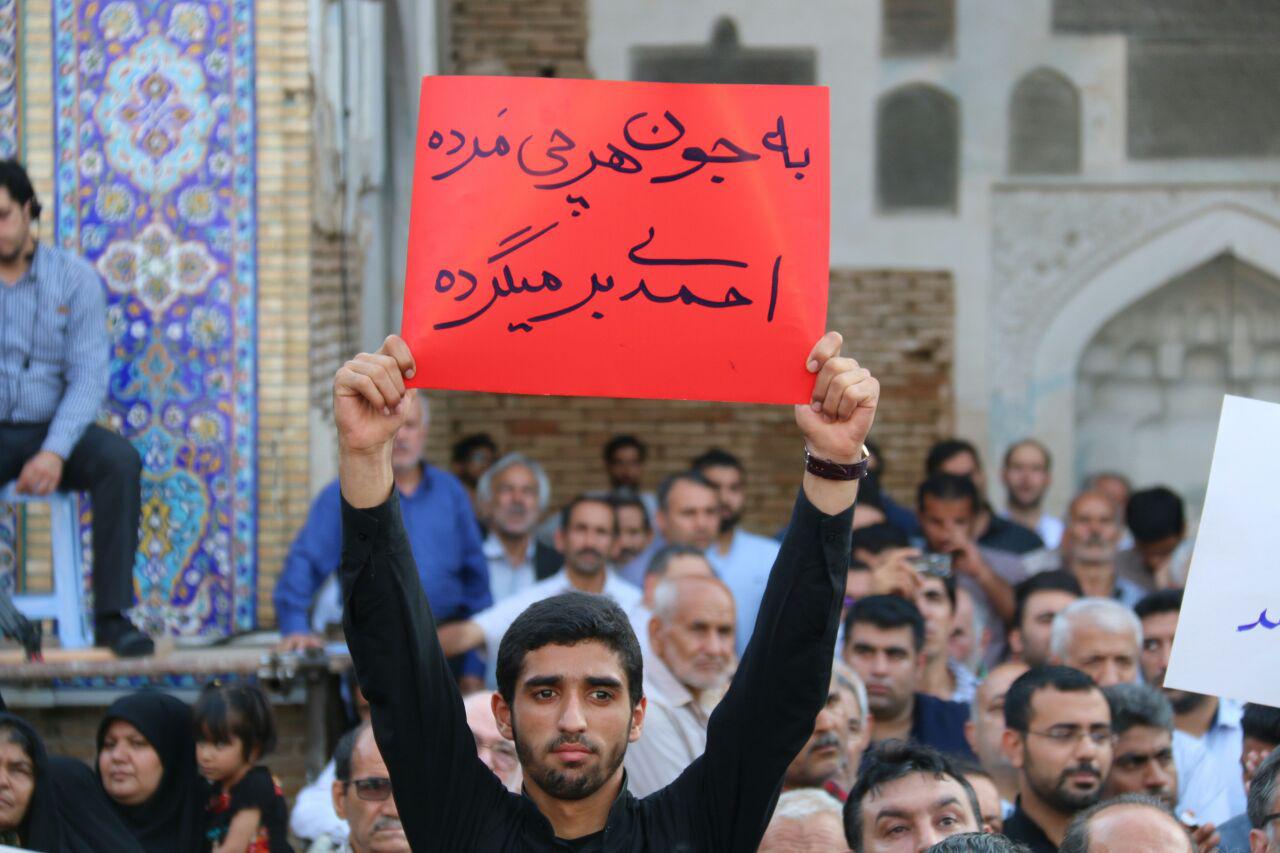 به جون هر چی مَرده
احمدی بر میگرده